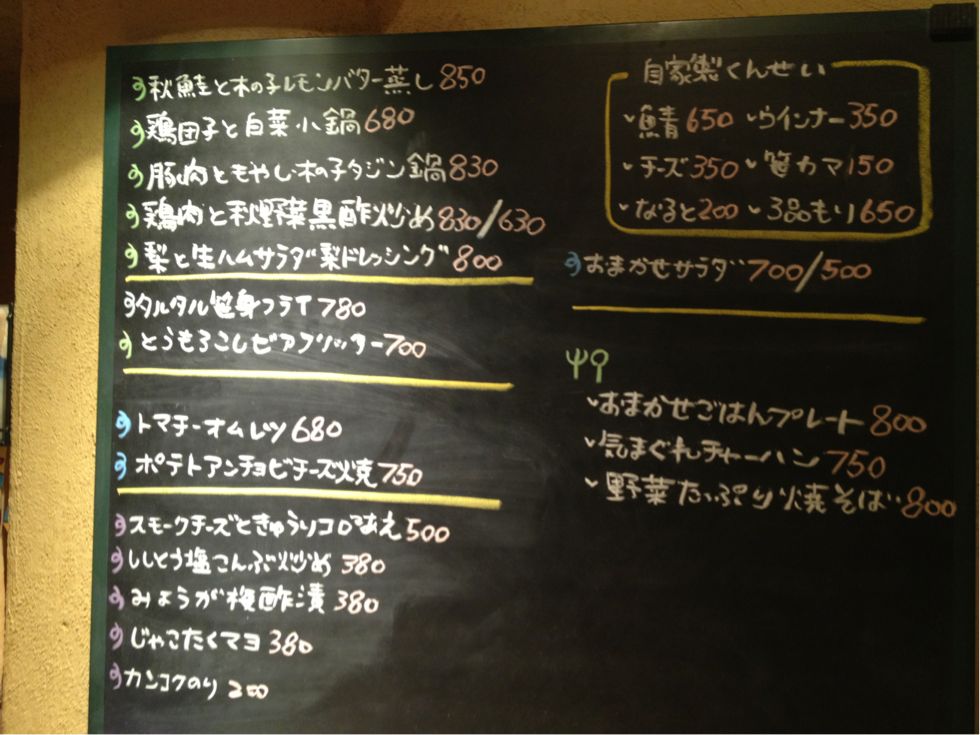 秋鮭と木の子レモンバター蒸し 850
鶏団子と白菜小鍋 680
豚肉ともやし木の子タジン鍋 830
鶏肉と秋野菜黒酢炒め 830/630
梨と生ハムサラダ 梨ドレッシング 800
タルタル笹身フライ 780
とうもろこしビアフリッター 700
トマチーオムレツ 680
ポテトアンチョビチーズ焼 750
スモークチーズときゅうりコロコロあえ 500
ししとう塩こんぶ炒め 380
みょうが梅酢漬 380
じゃこたくマヨ 380
カンコクのり 200
自家製くんせい
鯖 650 ウインナー 350
チーズ 350 笹カマ 150
なると 200 3品もり 650
おまかせサラダ 700/500
おまかせごはんプレート 800
気まぐれチャーハン 750
野菜たっぷり焼そば 800